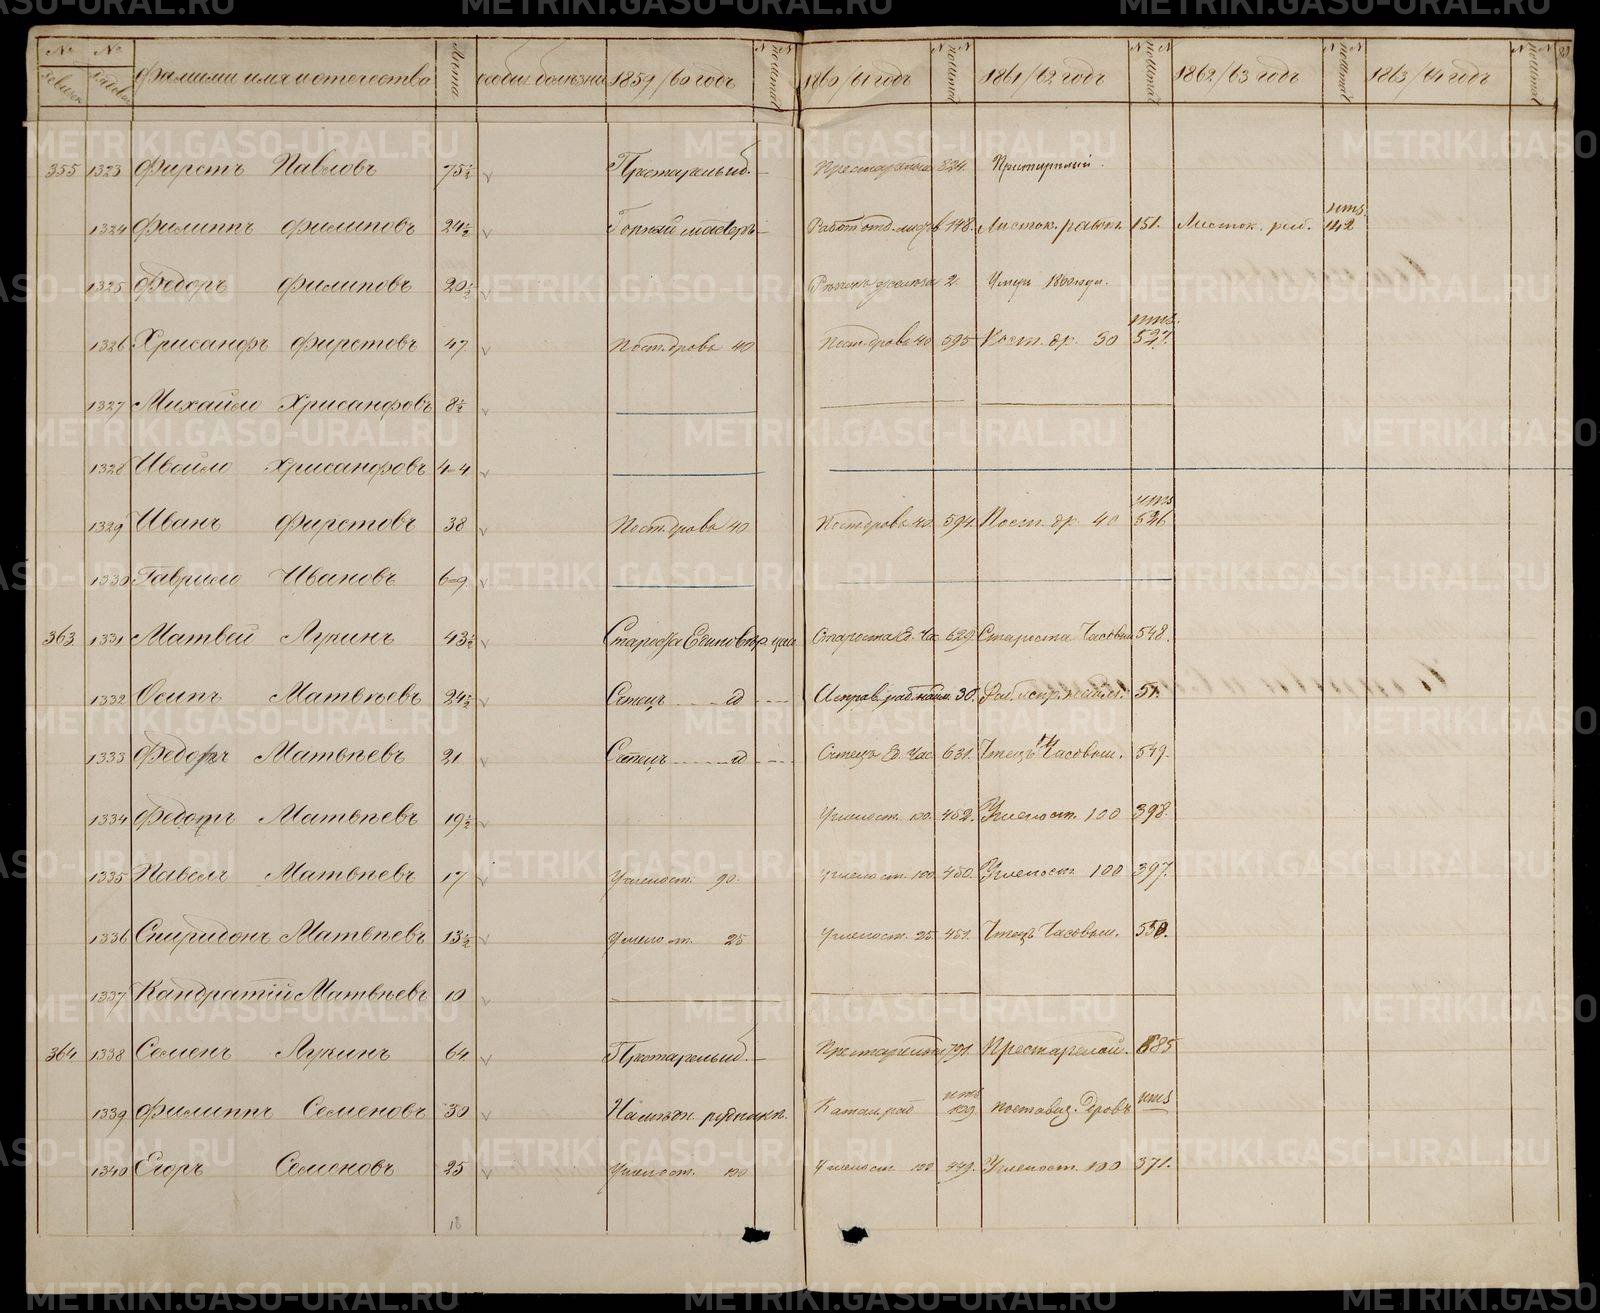 № № Фамилии имя и отечество Лѣта особыя болѣзни 1859/60 годъ 1860/61 годъ 1861/62 годъ 1862/63 годъ 1863/64 годъ
355 1323 Фирстъ Павловъ 75½ Престарелый. Престарелый 824. Престарелый.
1324 Филиппъ Филиповъ 24½ Горный мастеръ 148. Листок. рабоч. 151. Листок. раб. 142
1325 Федоръ Филиповъ 20½ 2. Умеръ 1860 года.
1326 Хрисанфъ Фирстовъ 47 Пост. дрова 40 Пост. дрова 40 595 Пост. др. 30 527.
1327 Михайло Хрисанфовъ 8½
1328 Ивойло Хрисанфовъ 4-4
1329 Иванъ Фирстовъ 38 Пост. дрова 40 Пост. дрова 40 594 Пост. др. 40 526
1330 Гаврило Ивановъ 6-9
363. 1331 Матвей Лукинъ 43½ Староста Единовер. час. Староста Е. Час. 629. Староста Часовни 548.
1332 Осипъ Матвѣевъ 24½ Исправ. раб. найм. 30. 51.
1333 Федоръ Матвѣевъ 21 Е. Час. 631. Чтецъ Часовни. 549.
1334 Федотъ Матвѣевъ 19½ Углепост. 100. 452. Углепост. 100 398.
1335 Павелъ Матвѣевъ 17 Углепост. 90. Углепост. 100. 450. Углепост. 100 397.
1336 Спиридонъ Матвѣевъ 13½ Углепост. 25 Углепост. 25 451. Чтецъ Часовни. 550.
1337 Кандратій Матвѣевъ 10
364. 1338 Семенъ Лукинъ 64 Престарелый. Престарелый 791. Престарелой. 685
1339 Филиппъ Семеновъ 30 рудники. Катал. раб 109. поставщ. дровъ
1340 Егоръ Семеновъ 25 Углепост. 100 Углепост. 100 449. Углепост. 100 371.
18
METRIKI.GASO-URAL.RU